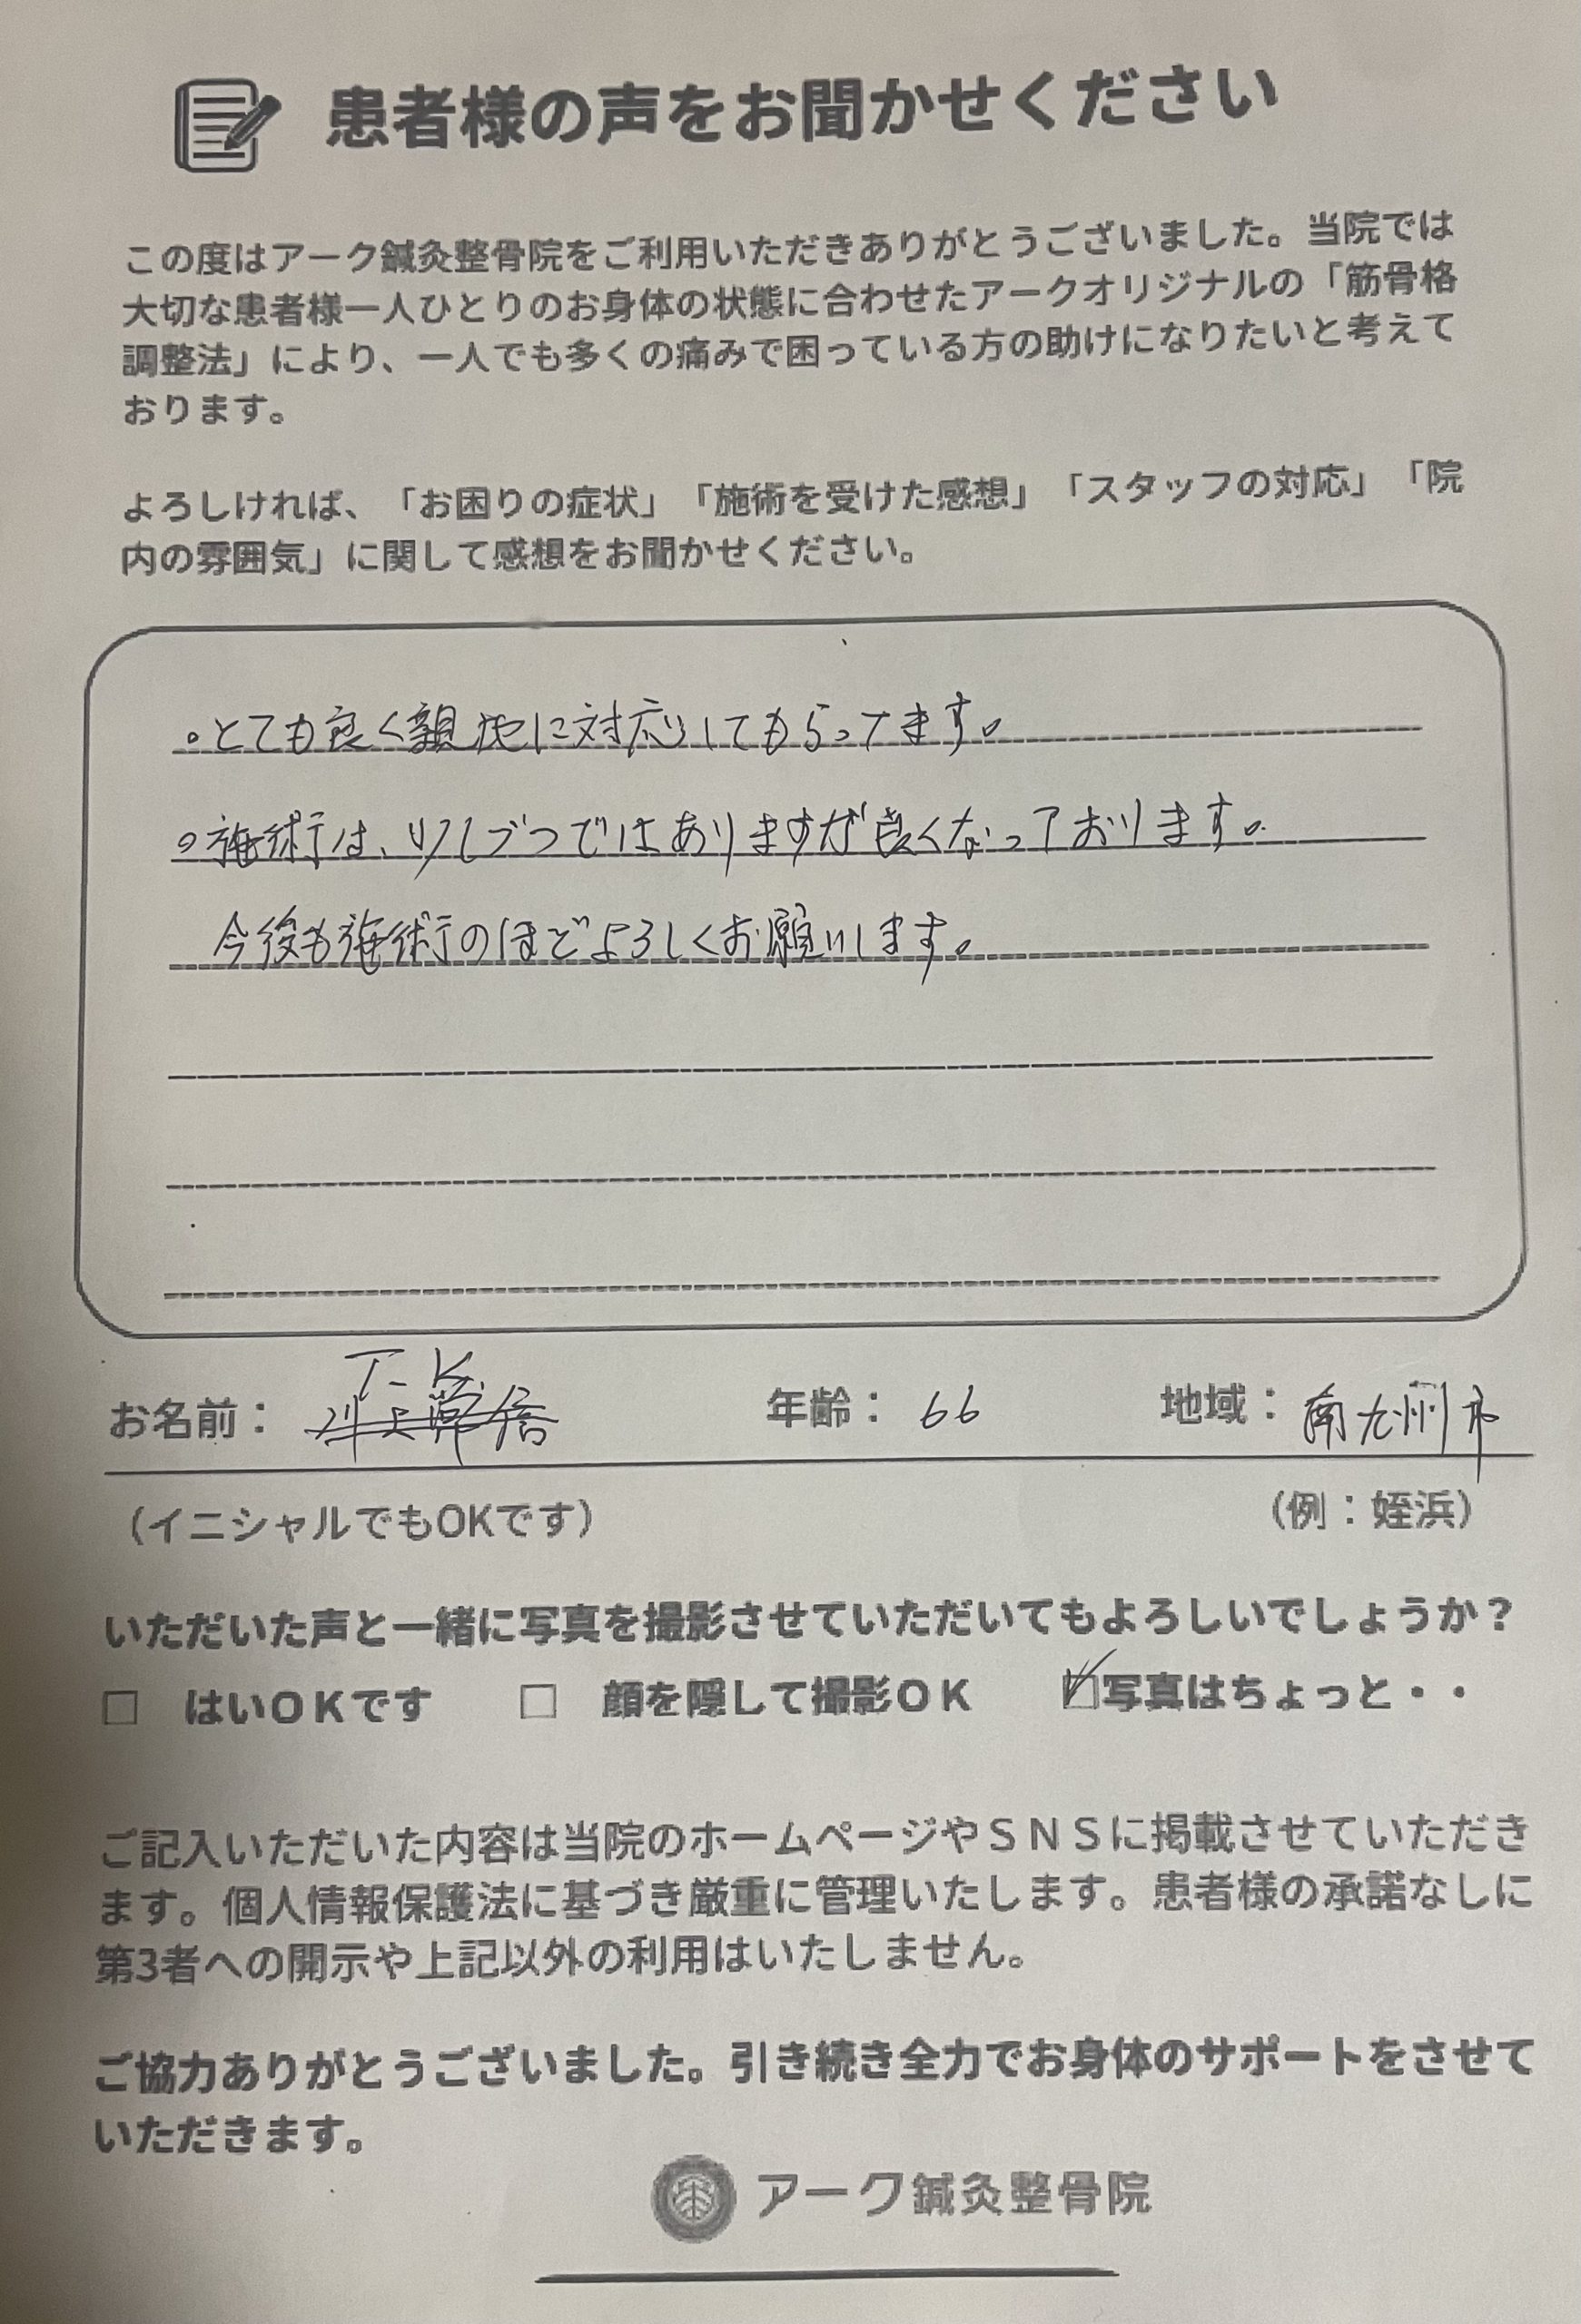 患者様の声をお聞かせください
この度はアーク鍼灸整骨院をご利用いただきありがとうございました。当院では
大切な患者様一人ひとりのお身体の状態に合わせたアークオリジナルの「筋骨格
調整法」により、一人でも多くの痛みで困っている方の助けになりたいと考えて
おります。
よろしければ、「お困りの症状」「施術を受けた感想」「スタッフの対応」「院
内の雰囲気」に関して感想をお聞かせください。
。とても良く親切に対応してもらってます。
。施術は、少しづつではありますが良くなっております。
今後も施術のほどよろしくお願いします。
T-K
お名前： 年齢： 66 地域： 南九州市
（イニシャルでもOKです） （例：姪浜）
いただいた声と一緒に写真を撮影させていただいてもよろしいでしょうか？
□ はいＯＫです □ 顔を隠して撮影ＯＫ ☑写真はちょっと・・
ご記入いただいた内容は当院のホームページやＳＮＳに掲載させていただき
ます。個人情報保護法に基づき厳重に管理いたします。患者様の承諾なしに
第3者への開示や上記以外の利用はいたしません。
ご協力ありがとうございました。引き続き全力でお身体のサポートをさせて
いただきます。
アーク鍼灸整骨院